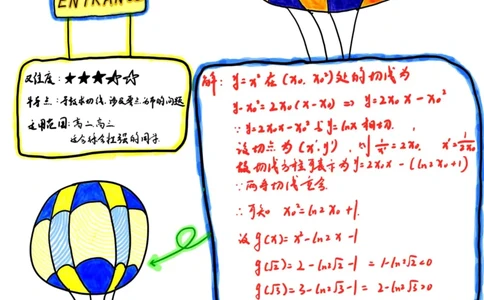 ENTRANCE
难度：★★★☆☆
考点：导数求切线，涉及零点分布的问题
适用范围：高二高三
适合综合性强的同学
解：y=x²在(x₀, x₀²)处的切线为
y-x₀²=2x₀(x-x₀) ⇒ y=2x₀x-x₀²
∵y=2x₀x-x₀²与y=lnx相切，
设切点为(x′,y′)，则 1/x′=2x₀，x′=1/2x₀
故切线方程可表示为y=2x₀x-(ln2x₀+1)
∵两条切线重合
∴可知 x₀²=ln2x₀+1.
设g(x)=x²-ln2x-1
g(√2)=2-ln2√2-1=1-ln2√2<0
g(√3)=3-ln2√3-1=2-ln2√3>0